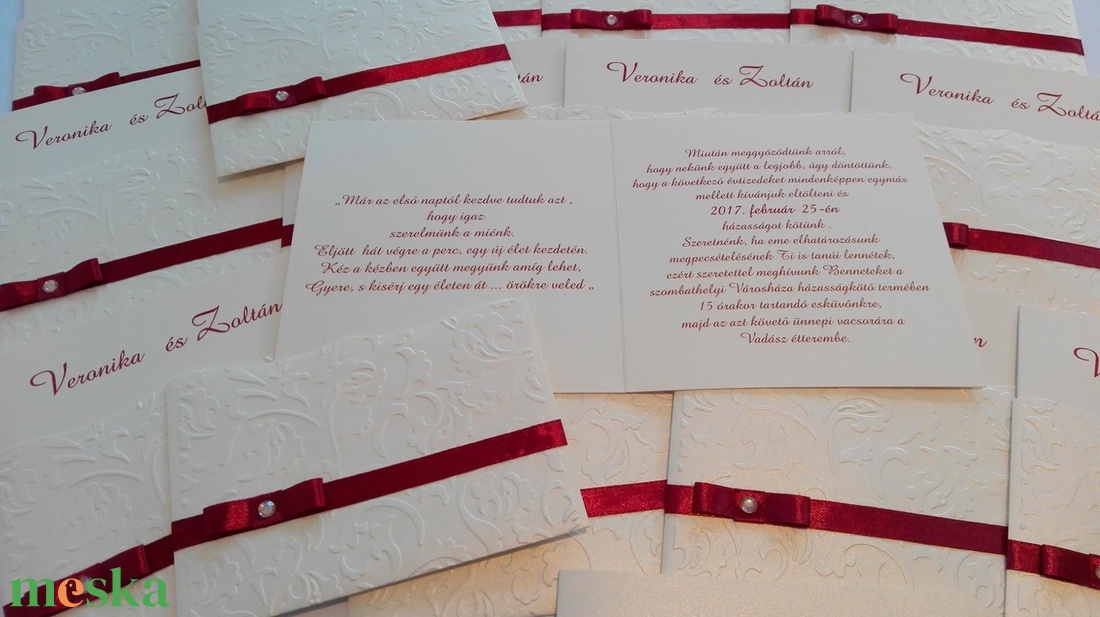 Veronika és Zoltán
Veronika és Zoltán
Veronika és
Veronika és Zoltán
„Már az első naptól kezdve tudtuk azt ,
hogy igaz
szerelmünk a miénk.
Eljött hát végre a perc, egy új élet kezdetén.
Kéz a kézben együtt megyünk amíg lehet,
Gyere, s kisérj egy életen át ... örökre veled „
Miután meggyőződtünk arról,
hogy nekünk együtt a legjobb, úgy döntöttünk,
hogy a következő évtizedeket mindenképpen egymás
mellett kívánjuk eltölteni és
2017. február 25-én
házasságot kötünk .
Szeretnénk, ha eme elhatározásunk
megpecsételésének Ti is tanúi lennétek,
ezért szeretettel meghívunk Benneteket a
szombathelyi Városháza házasságkötő termében
15 órakor tartandó esküvőnkre,
majd az azt követő ünnepi vacsorára a
Vadász étterembe.
Veronika és Zoltán
meska